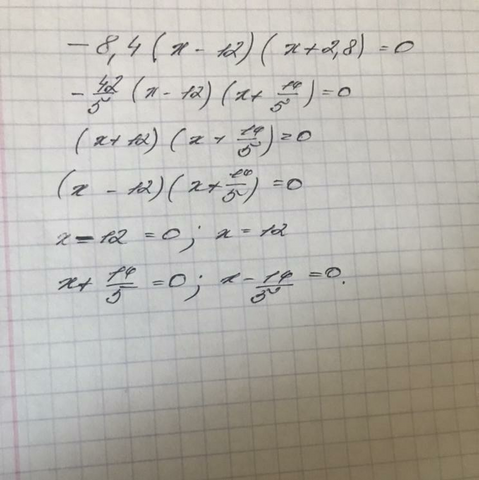 - 8,4 ( x - 12 ) ( x + 2,8 ) = 0
- 42/5 ( x - 12 ) ( x + 14/5 ) = 0
( x + 12 ) ( x + 14/5 ) = 0
( x - 12 ) ( x + 14/5 ) = 0
x - 12 = 0 ; x = 12
x + 14/5 = 0 ; x - 14/5 = 0.